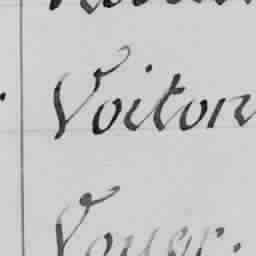 Voiton
Voyer.